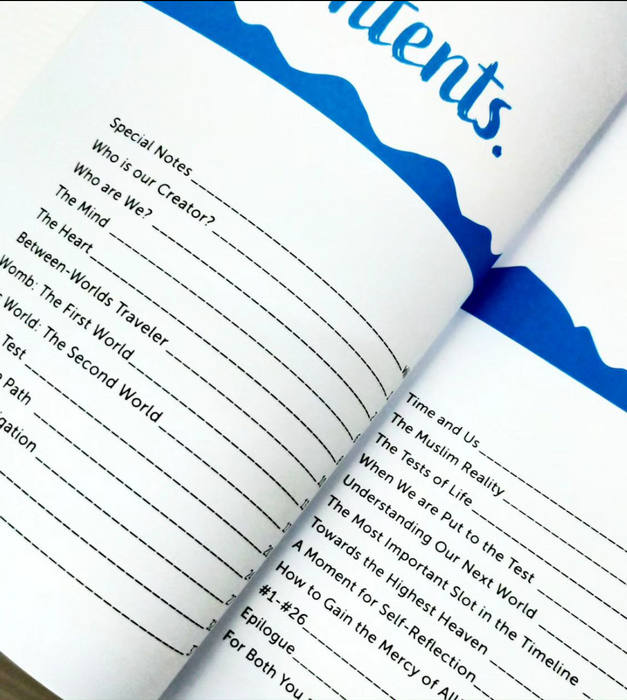 ntents.
Special Notes
Who is our Creator?
Who are We?
The Mind
The Heart
Between-Worlds Traveler
Womb: The First World
World: The Second World
Test
Path
Time and Us
The Muslim Reality
The Tests of Life
When We are Put to the Test
Understanding Our Next World
The Most Important Slot in the Timeline
Towards the Highest Heaven
A Moment for Self-Reflection
How to Gain the Mercy of
#1-#26
Epilogue
For Both You